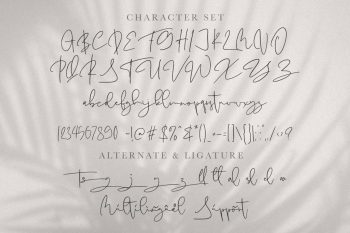 CHARACTER SET
ABCDEFGHIJKLMNO
PQRSTUVWXYZ
abcdefghijklmnopqrstuvwxyz
1234567890
ALTERNATE & LIGATURE
Multilingual Support